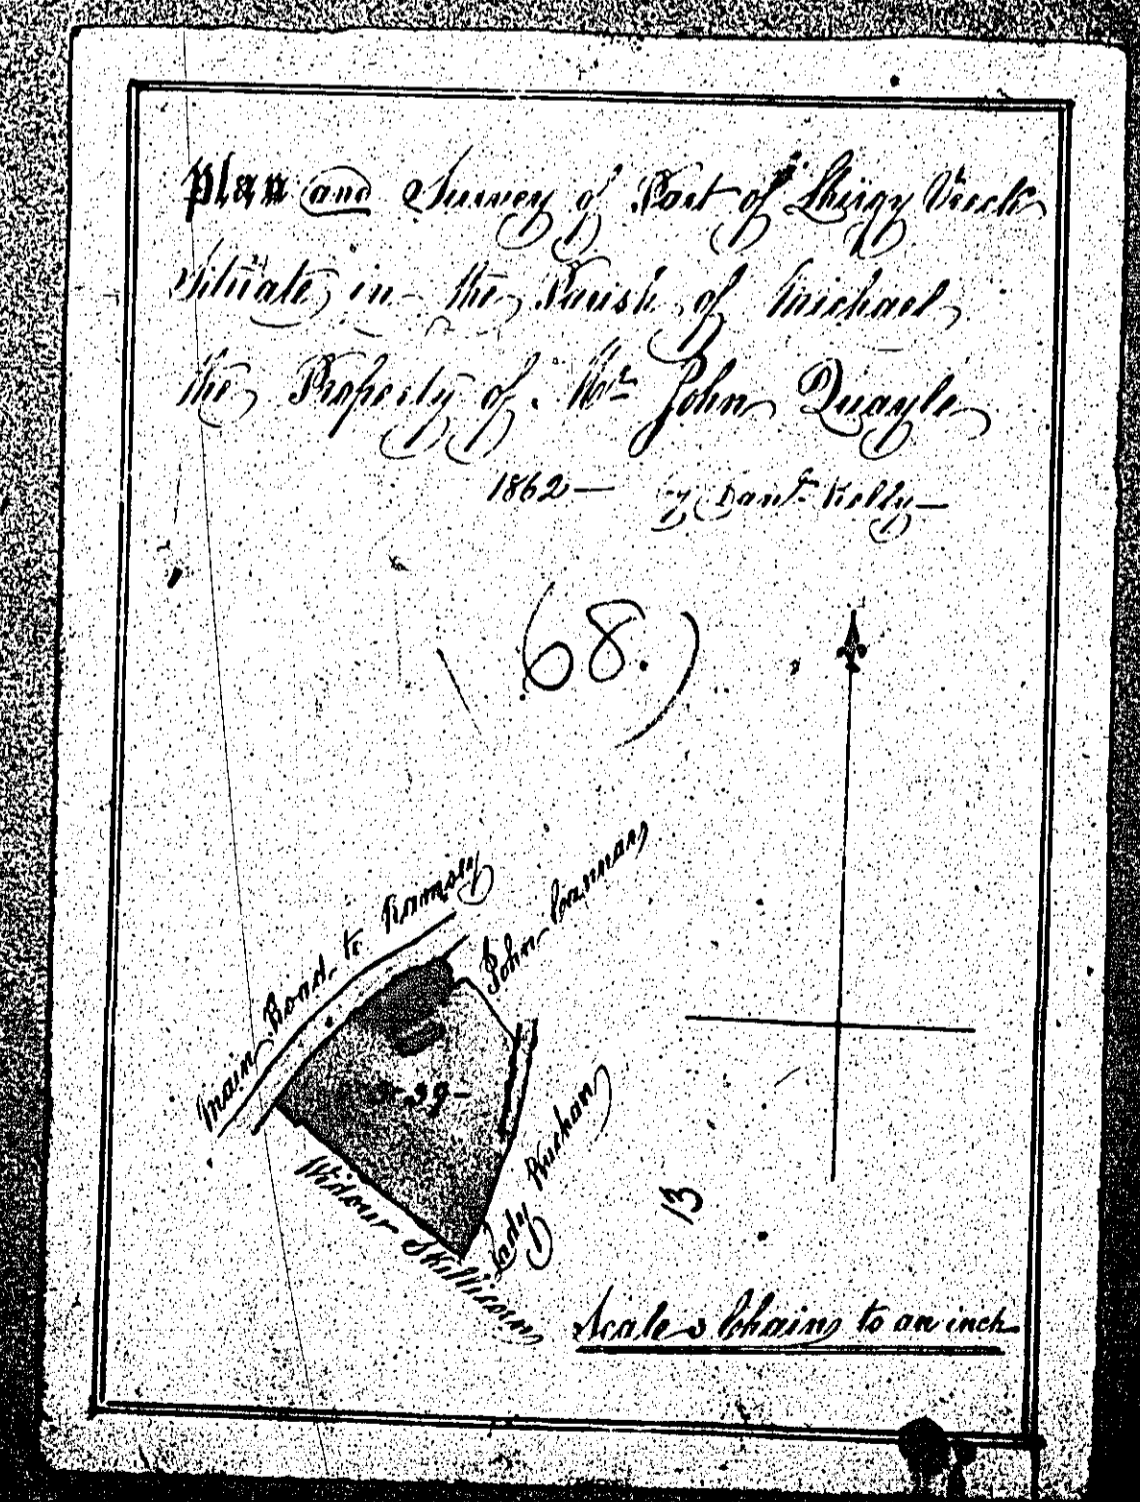 Plan and Survey of Part of Lhergy Vreck
Situate in the Parish of Michael
the Property of Mr John Quayle
1862— by Danl. Kelly—
68.)
Main Road to Ramsey
John Cannan
Lady Buchan
Widow Skillicorn
13
Scale Chains to an inch